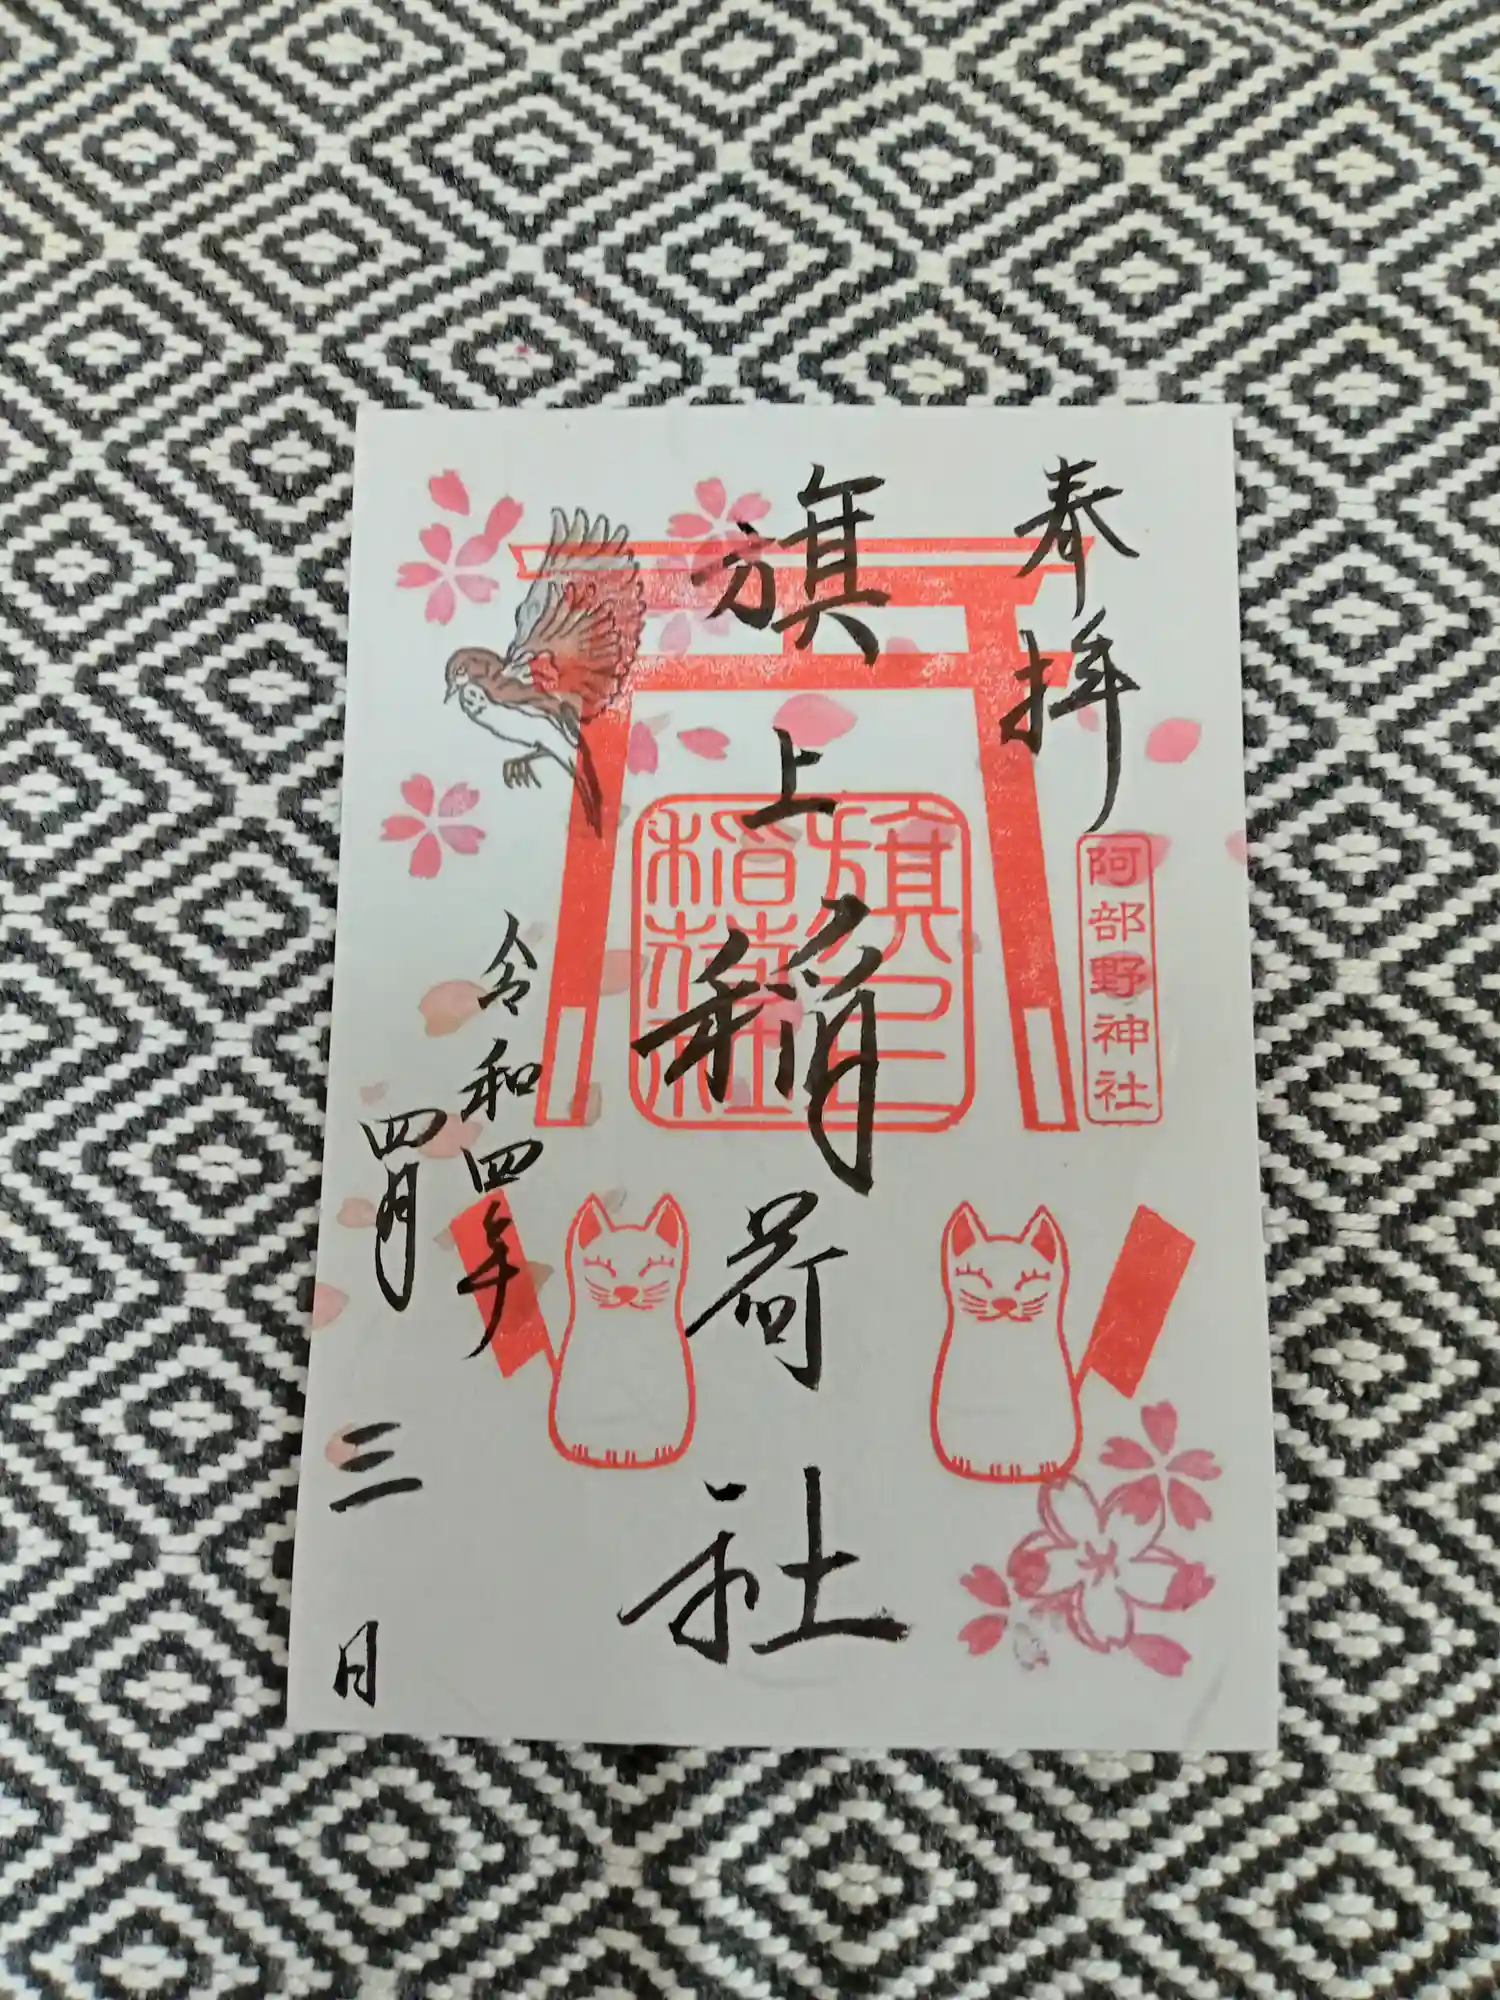 奉拝
阿部野神社
旗上稲荷社
旗上
稲荷社
令和四年
四月三日